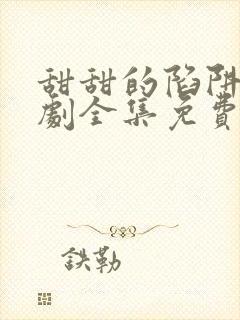 甜甜的陷阱
劇全集免費
鉄勒